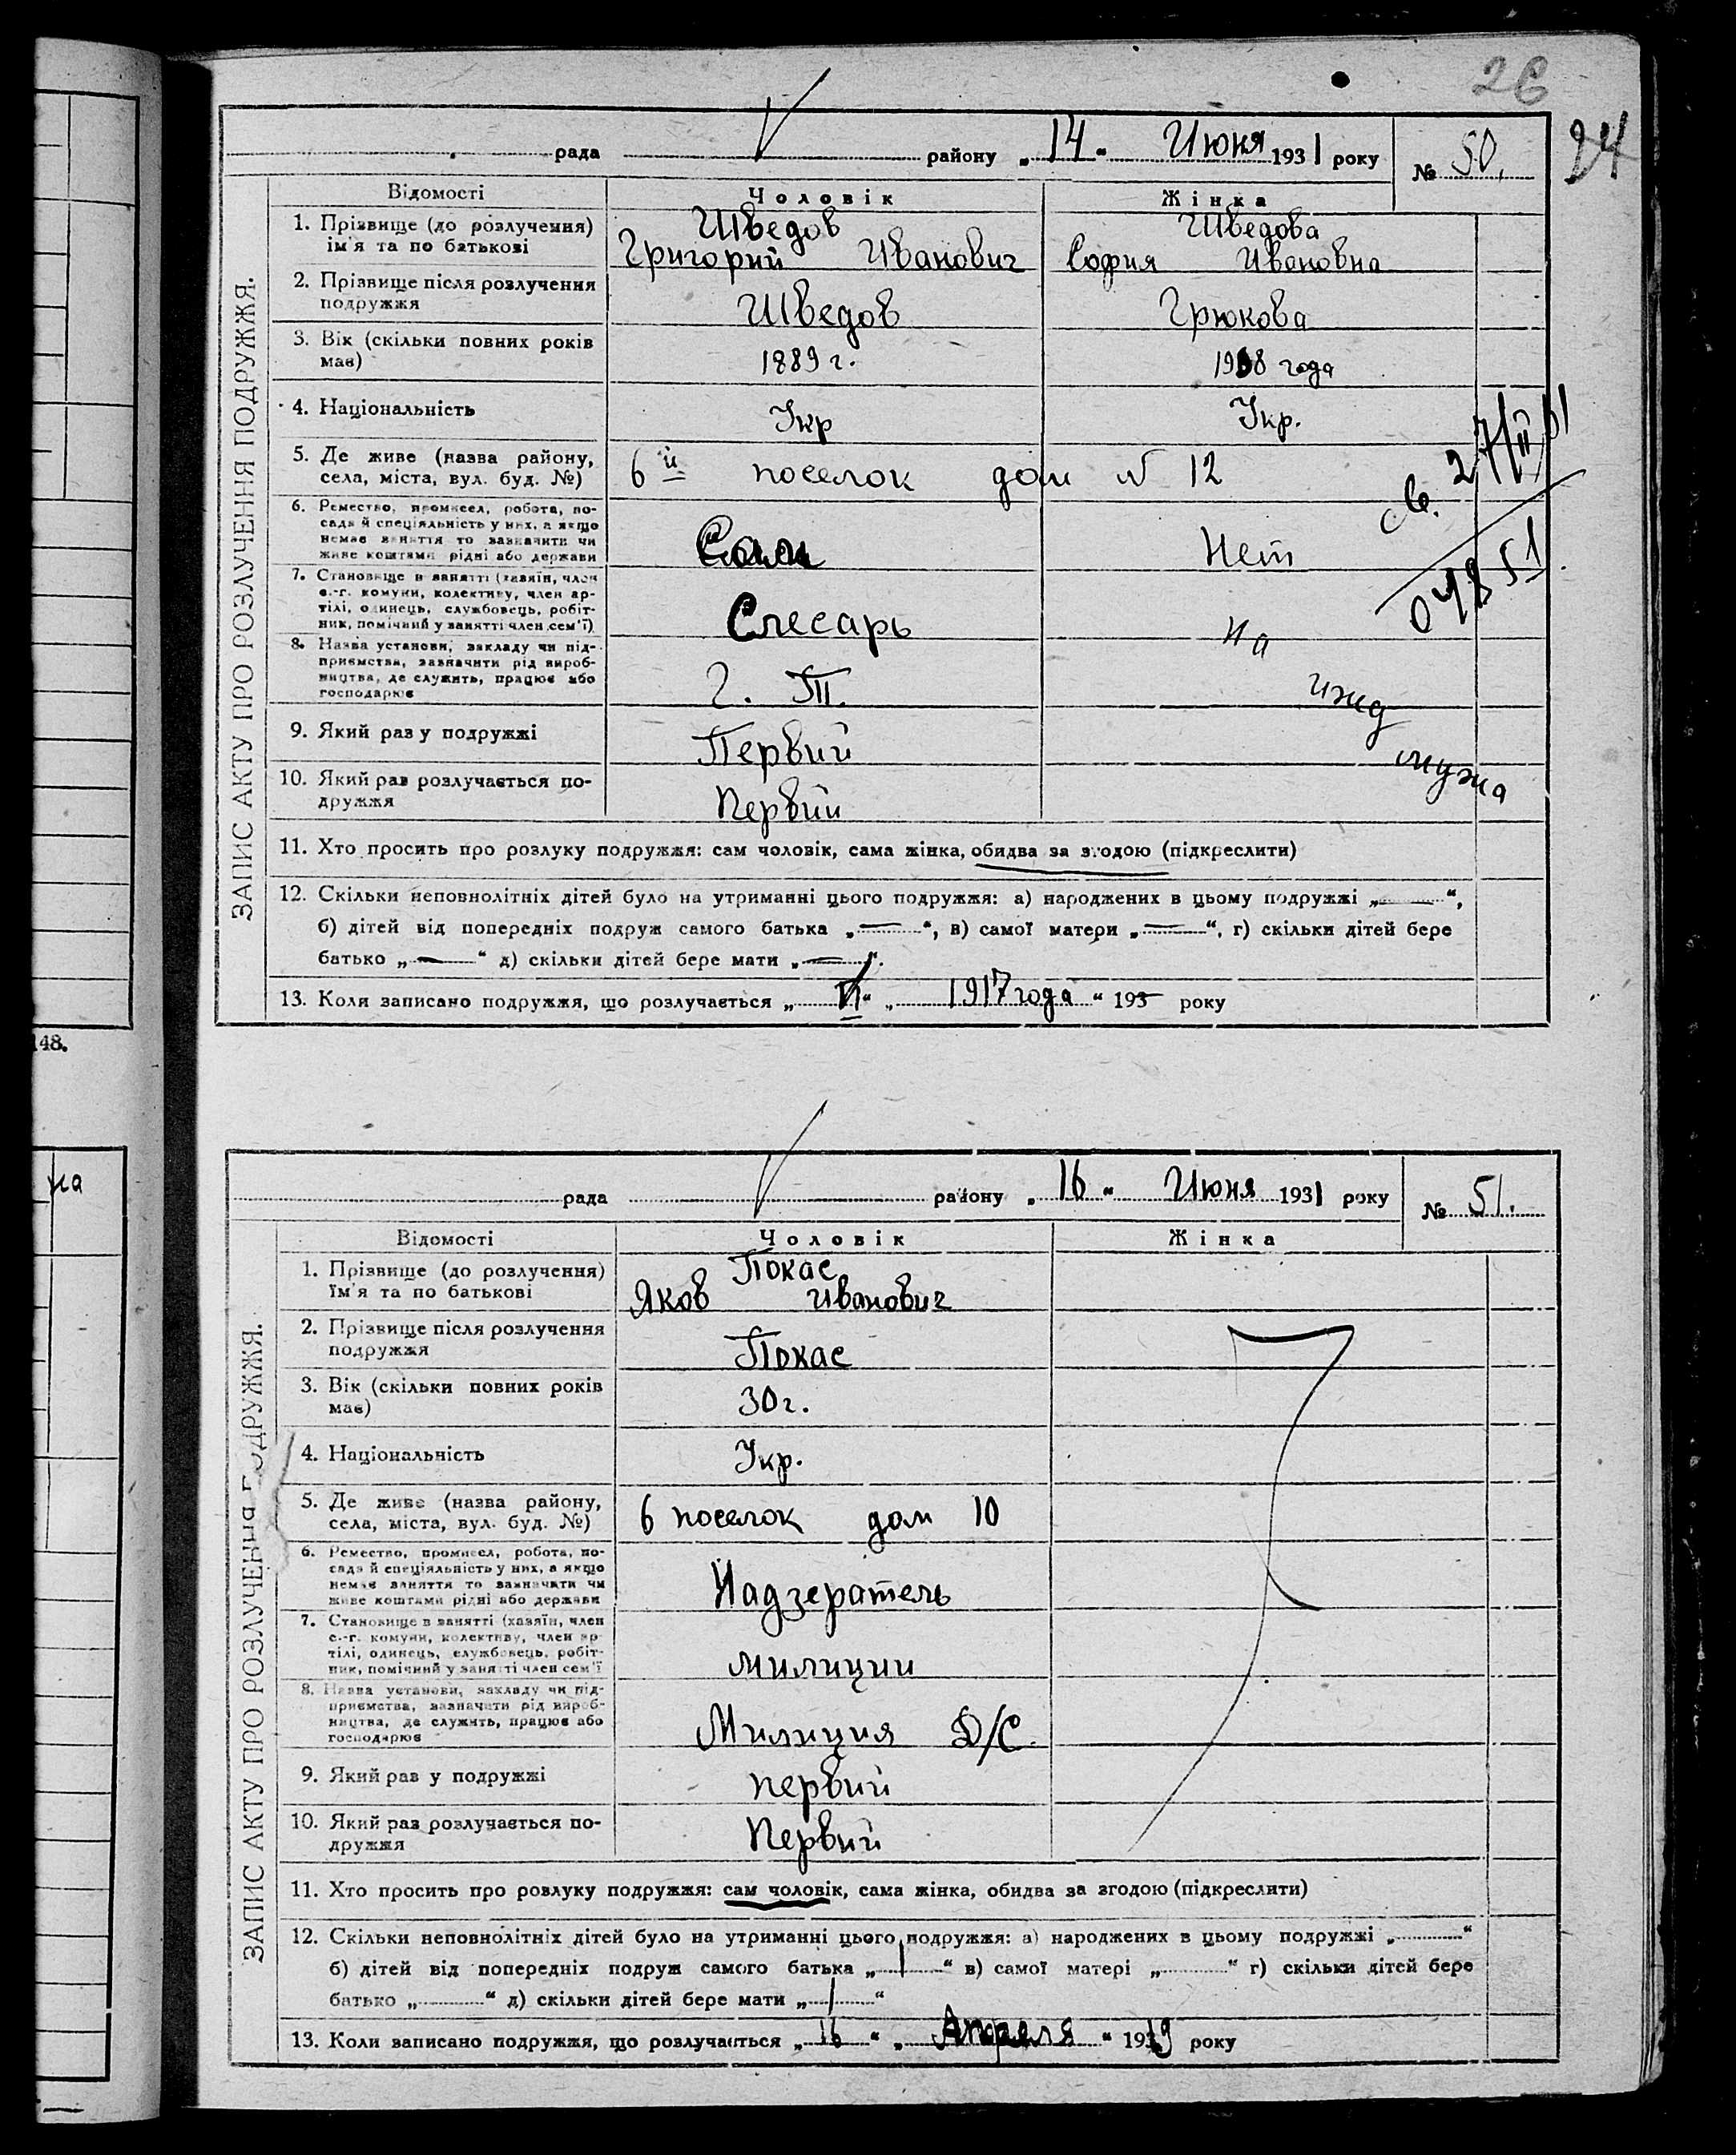 26
24
рада району „14“ Июня 1931 року № 50.
ЗАПИС АКТУ ПРО РОЗЛУЧЕННЯ ПОДРУЖЖЯ.
Відомості Чоловік Жінка
1. Прізвище (до розлучення) ім'я та по батькові
Шведов
Григорий Иванович
Шведова
София Ивановна
2. Прізвище після розлучення подружжя
Шведов
Грюкова
3. Вік (скільки повних років має)
1889 г.
1908 года
4. Національність
Укр
Укр.
5. Де живе (назва району, села, міста, вул. буд. №)
6й поселок дом № 12
6. Ремество, промисел, робота, по-
сада й спеціяльність у них, а якщо
немає заняття то зазначити чи
живе коштами рідні або держави
Нет
7. Становище в занятті (хазяїн, член
с.-г. комуни, колективу, член ар-
тілі, одинець, службовець, робіт-
ник, помічний у занятті член сем'ї)
Слесарь
на
8. Назва установи, закладу чи під-
приємства, зазначити рід вироб-
ництва, де служить, працює або
господарює
Г. П.
ижд
мужа
9. Який раз у подружжі
Первий
10. Який раз розлучається по-
дружжя
Первий
11. Хто просить про розлуку подружжя: сам чоловік, сама жінка, обидва за згодою (підкреслити)
12. Скільки неповнолітніх дітей було на утриманні цього подружжя: а) народжених в цьому подружжі „—“,
б) дітей від попередніх подруж самого батька „—“, в) самої матери „—“, г) скільки дітей бере
батько „—“ д) скільки дітей бере мати „—“.
13. Коли записано подружжя, що розлучається „VI“ „1917 года“ 193 року
148.
на
рада району „16“ Июня 1931 року № 51.
ЗАПИС АКТУ ПРО РОЗЛУЧЕННЯ ПОДРУЖЖЯ.
Відомості Чоловік Жінка
1. Прізвище (до розлучення)
їм'я та по батькові
Покас
Яков Иванович
2. Прізвище після розлучення
подружжя
Покас
3. Вік (скільки повних років
має)
30 г.
4. Національність
Укр.
5. Де живе (назва району,
села, міста, вул. буд. №)
6 поселок дом 10
6. Ремество, промисел, робота, по-
сада й спеціяльність у них, а якщо
немає заняття то зазначити чи
живе коштами рідні або держави
Надзератель
7. Становище в занятті (хазяїн, член
с.-г. комуни, колективу, член ар-
тілі, одинець, службовець, робіт-
ник, помічний у занятті член сем'ї
милиции
8. Назва установи, закладу чи під-
приємства, зазначити рід вироб-
ництва, де служить, працює або
господарює
Милиция Д/С.
9. Який раз у подружжі
первий
10. Який раз розлучається по-
дружжя
Первий
11. Хто просить про розлуку подружжя: сам чоловік, сама жінка, обидва за згодою (підкреслити)
12. Скільки неповнолітніх дітей було на утриманні цього подружжя: а) народжених в цьому подружжі „ “
б) дітей від попередніх подруж самого батька „1“ в) самої матері „ “ г) скільки дітей бере
батько „ “ д) скільки дітей бере мати „1“
13. Коли записано подружжя, що розлучається „16“ „Апреля“ 1919 року